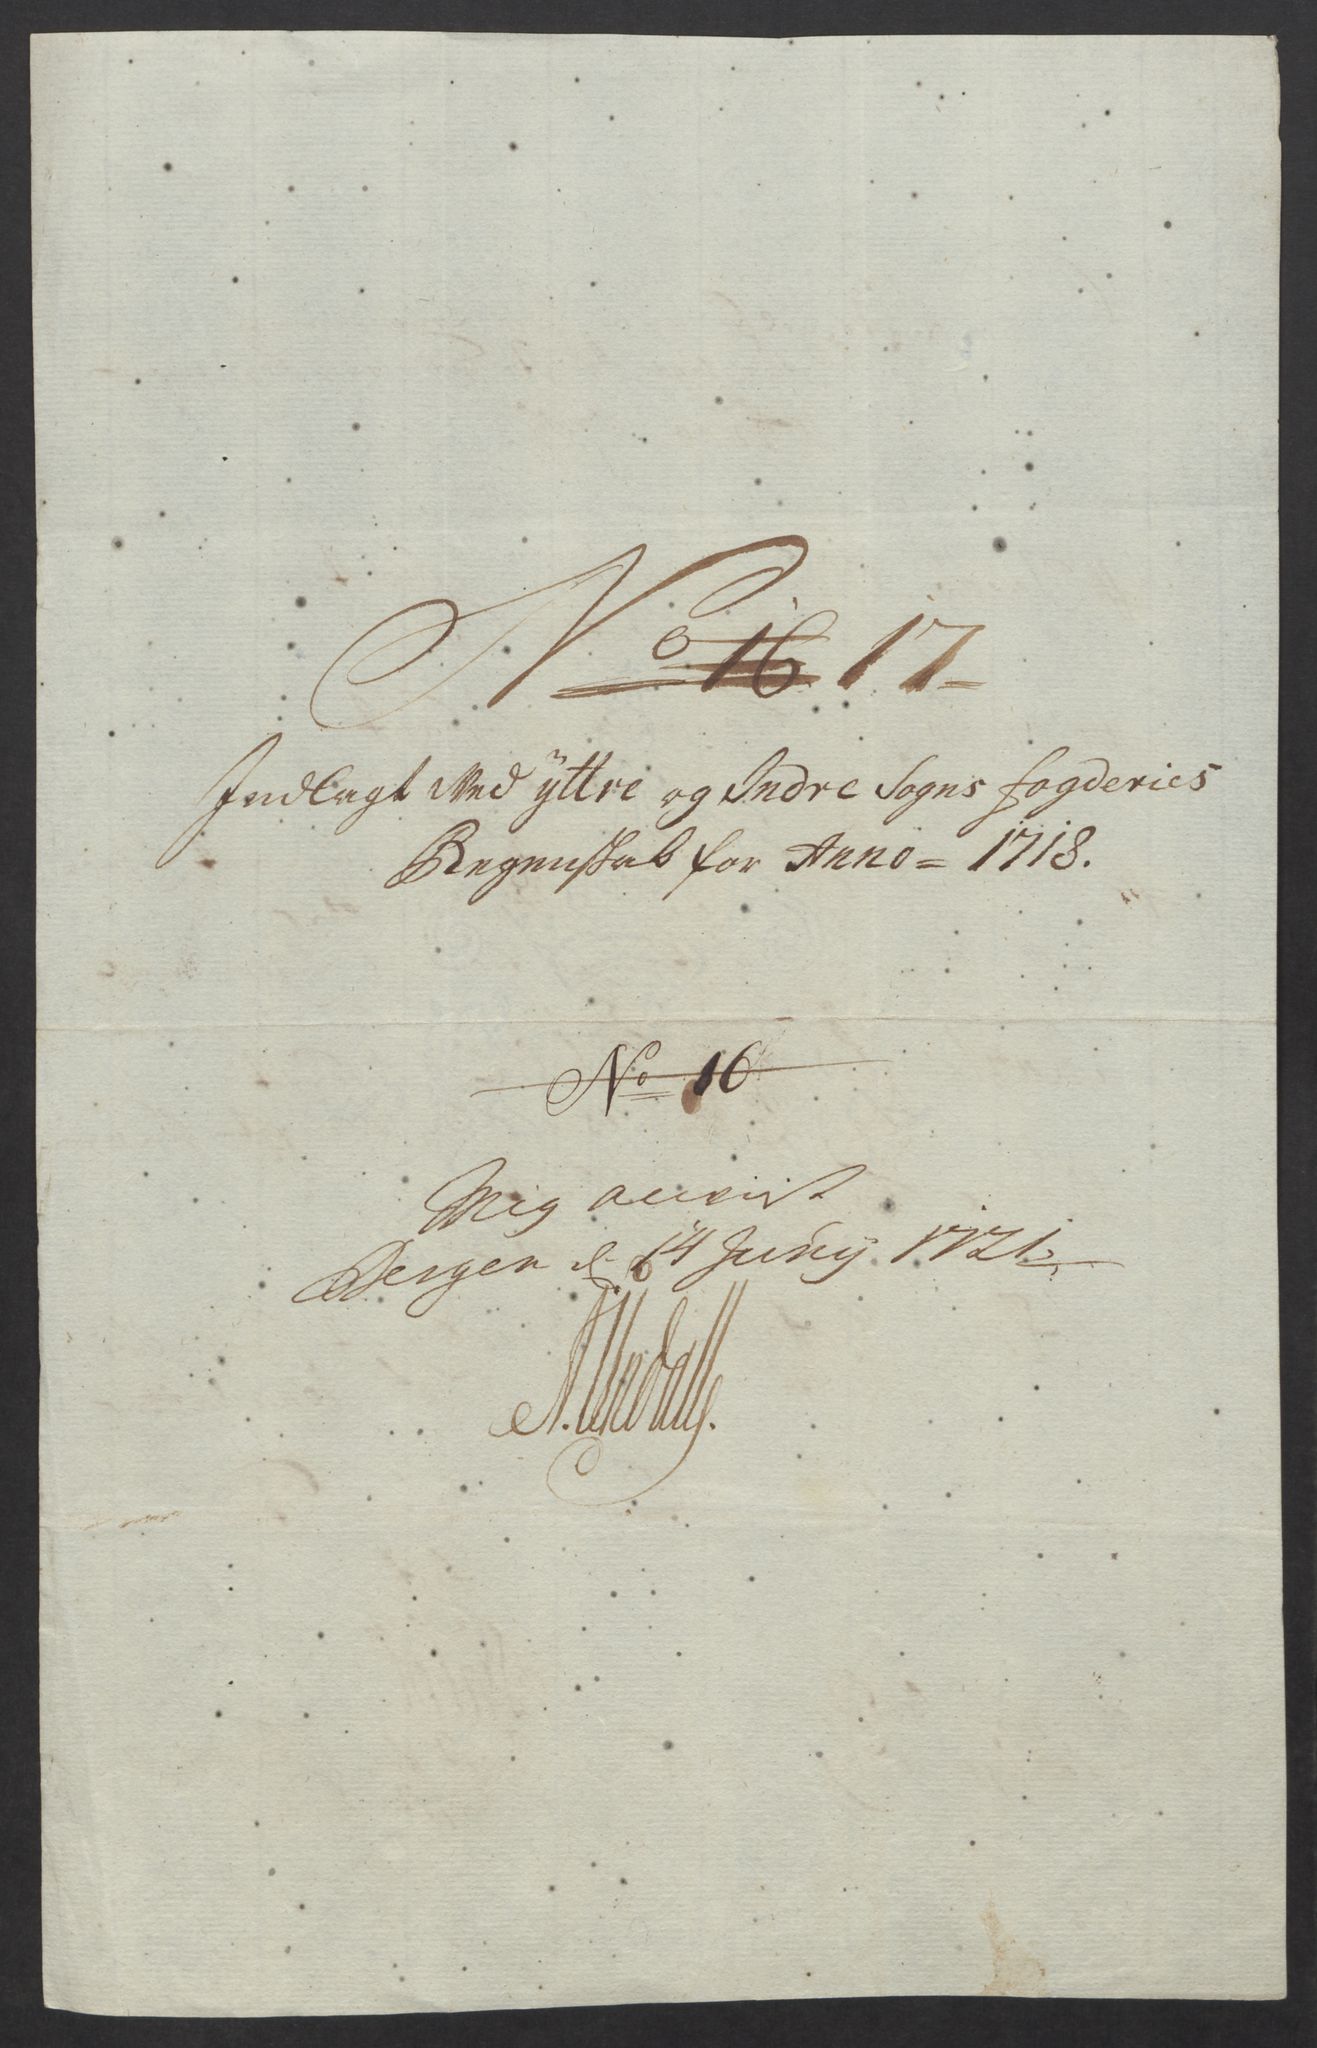 No 16 17
Indlagt Ved ÿttre og Indre Sogns fogderies
Regenskab for Anno = 1718.
No 16
Mig anvist
Bergen d 14 Junÿ 1721
A. Undall.